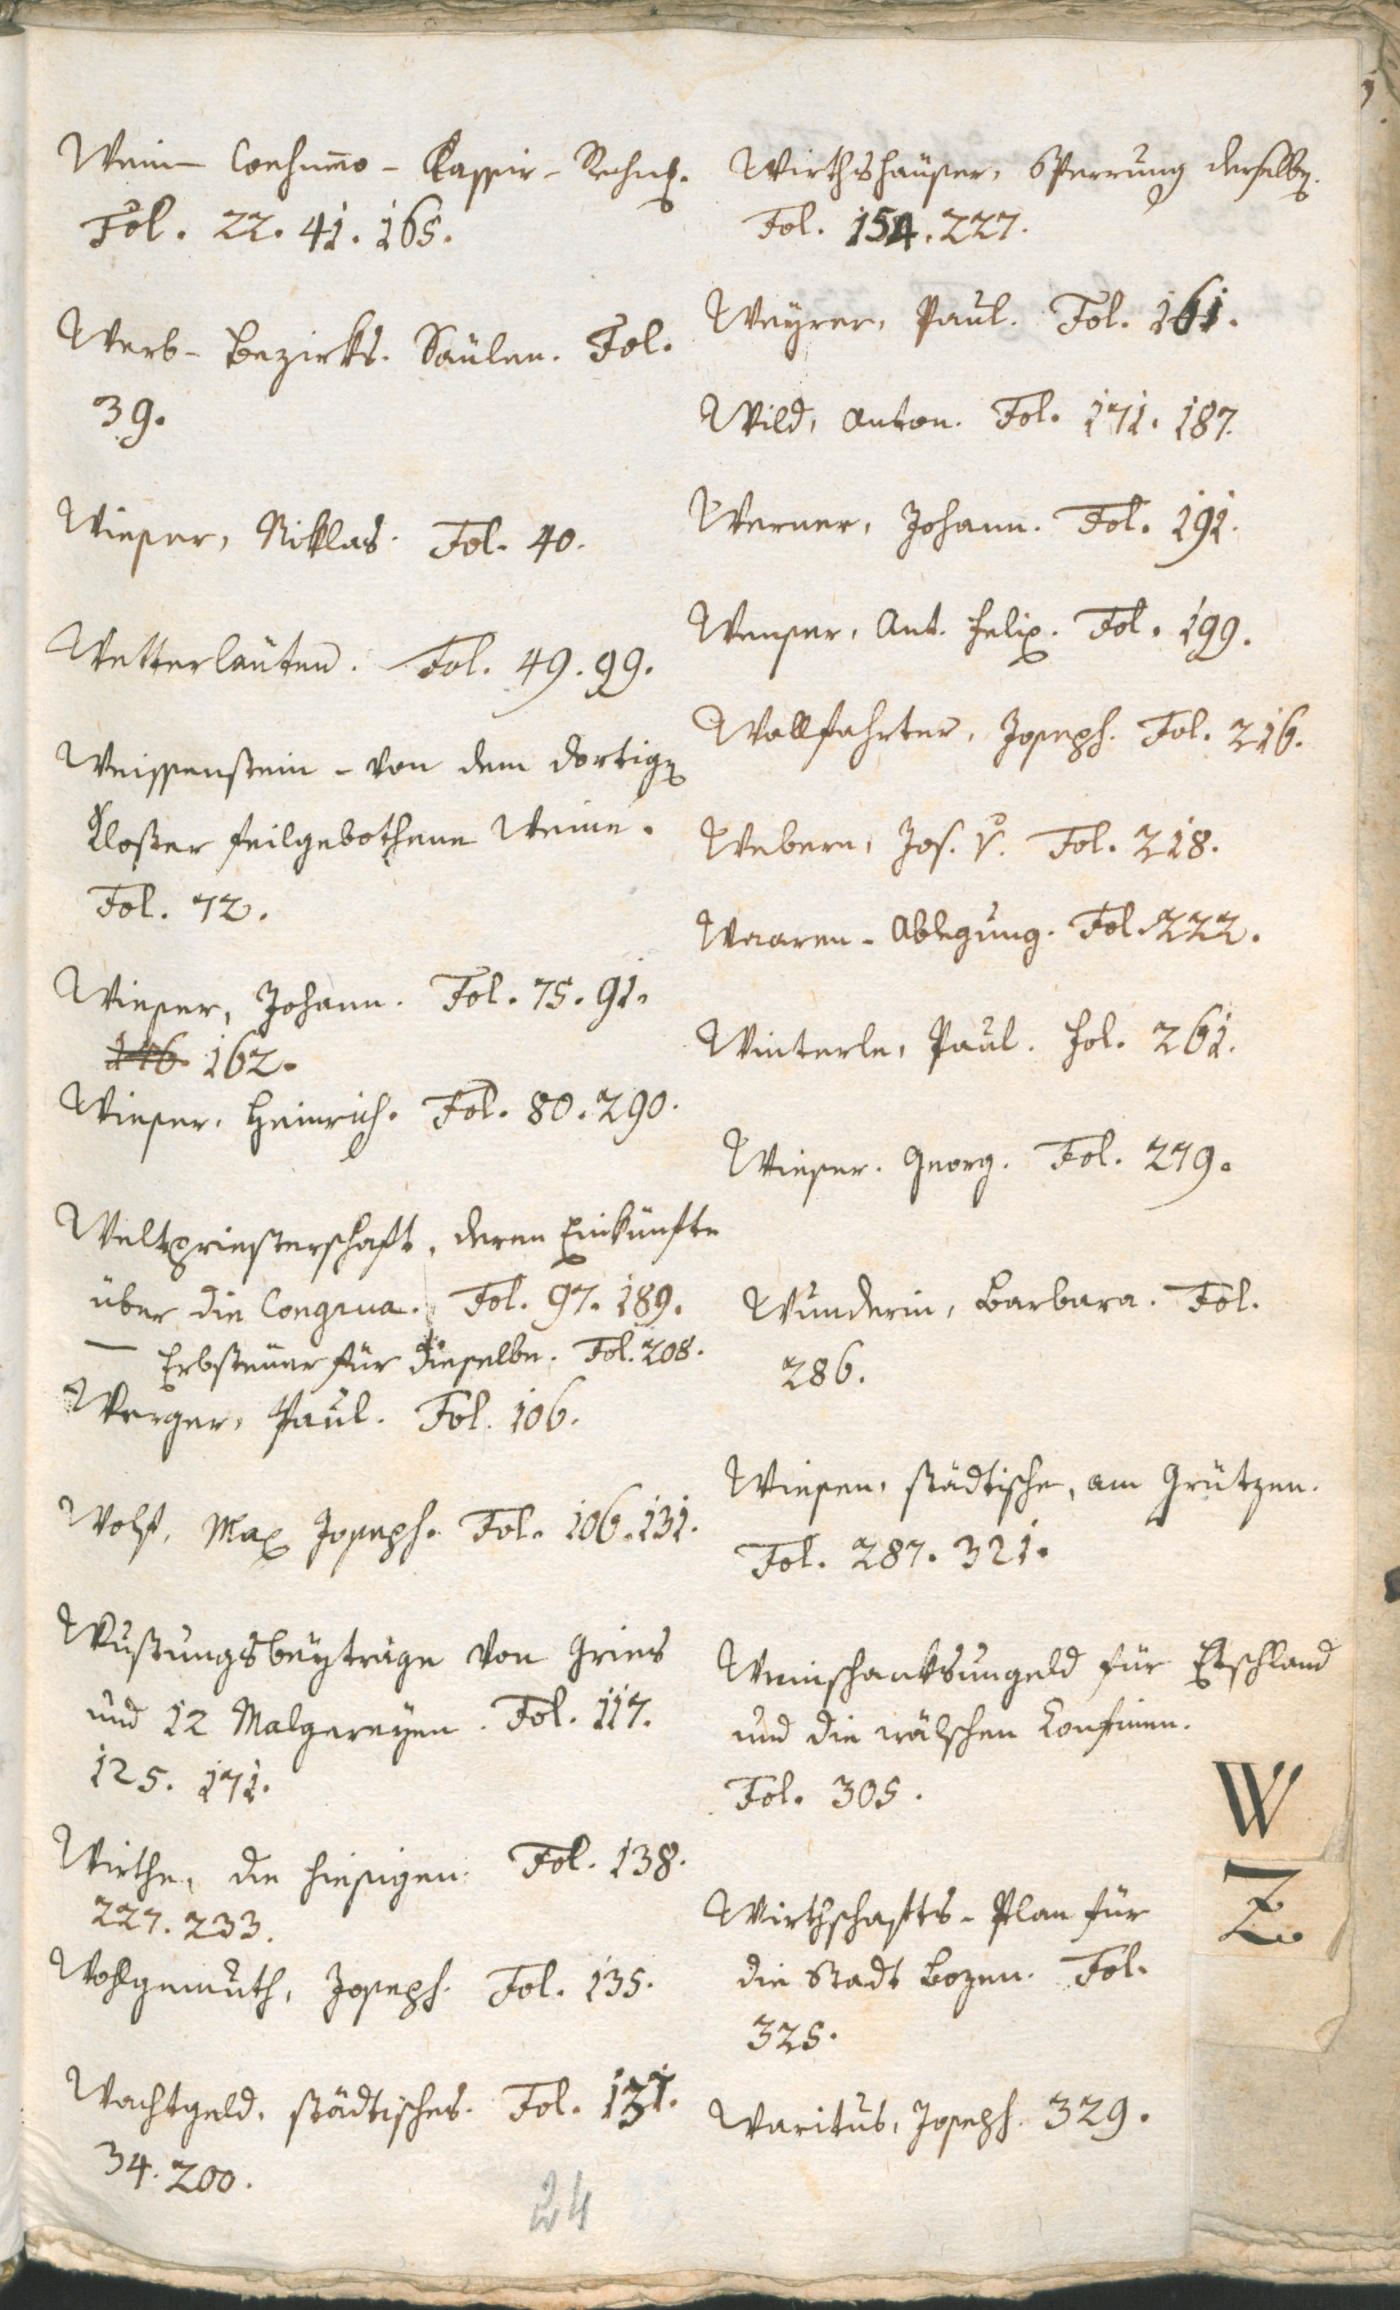 Wein- Consumo- Kassir- Rechnung.
Fol. 22. 41. 165.
Werb- Bezirks- Säulen. Fol.
39.
Wieser, Niklas. Fol. 40.
Wetterläuten. Fol. 49. 99.
Weissenstein - von dem dortigen
Kloster feilgebothene Weine.
Fol. 72.
Wieser, Johann. Fol. 75. 91.
146. 162.
Wieser, Heinrich. Fol. 80. 290.
Weltpriesterschaft, deren Einkünfte
über die Congrua. Fol. 97. 189.
— Erbsteuer für dieselbe. Fol. 208.
Werger, Paul. Fol. 106.
Wolf, Max Joseph. Fol. 106. 131.
Wustungsbeyträge von Gries
und 12 Malgereyen. Fol. 117.
125. 171.
Wirthe, die hiesigen. Fol. 138.
227. 233.
Wohlgemuth, Joseph. Fol. 135.
Wachtgeld, städtisches. Fol. 131.
34. 200.
24
Wirthshäuser, Sperrung derselben.
Fol. 154. 227.
Weyrer, Paul. Fol. 161.
Wild, Anton. Fol. 171. 187.
Werner, Johann. Fol. 191.
Wenser, Ant. Felix. Fol. 199.
Wallfahrter, Joseph. Fol. 216.
Webern, Jos. v. Fol. 218.
Waaren- Ablegung. Fol. 222.
Winterle, Paul. Fol. 261.
Wieser. Georg. Fol. 279.
Wunderin, Barbara. Fol.
286.
Wiesen, städtische, am Grützen.
Fol. 287. 321.
Weinschanksungeld für Etschland
und die wälschen Confinen.
Fol. 305.
Wirthschafts- Plan für
die Stadt Bozen. Fol.
325.
Waritus, Joseph. 329.
W
Z.